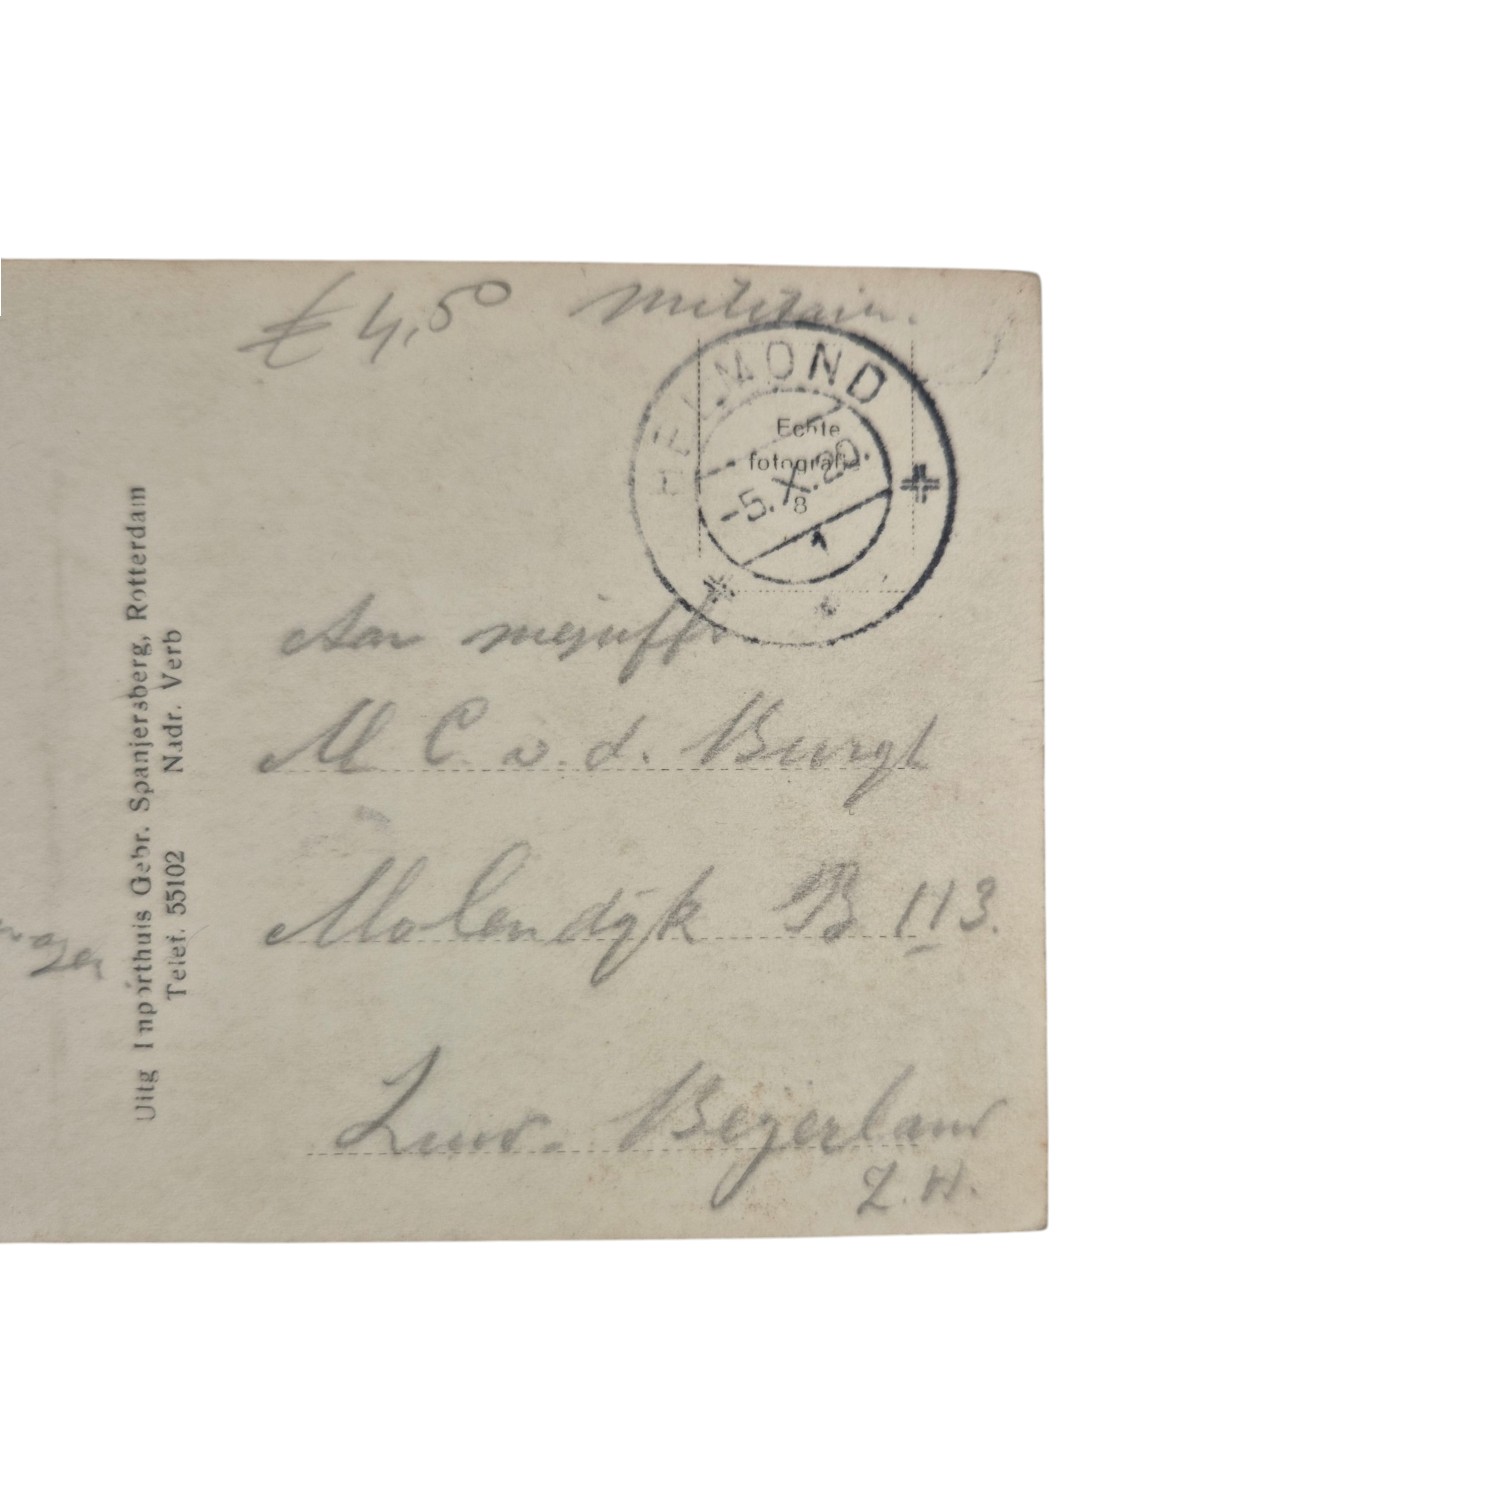 € 4,50 Militair.
HELMOND
Echte
fotografie
-5.X.20.
8
1
Aan mejuffr
M C v. d. Burgt
Molendijk B 113.
Zuid-Beijerland
Z.H.
Uitg Importhuis Gebr. Spanjersberg, Rotterdam
Telef. 55102 Nadr. Verb